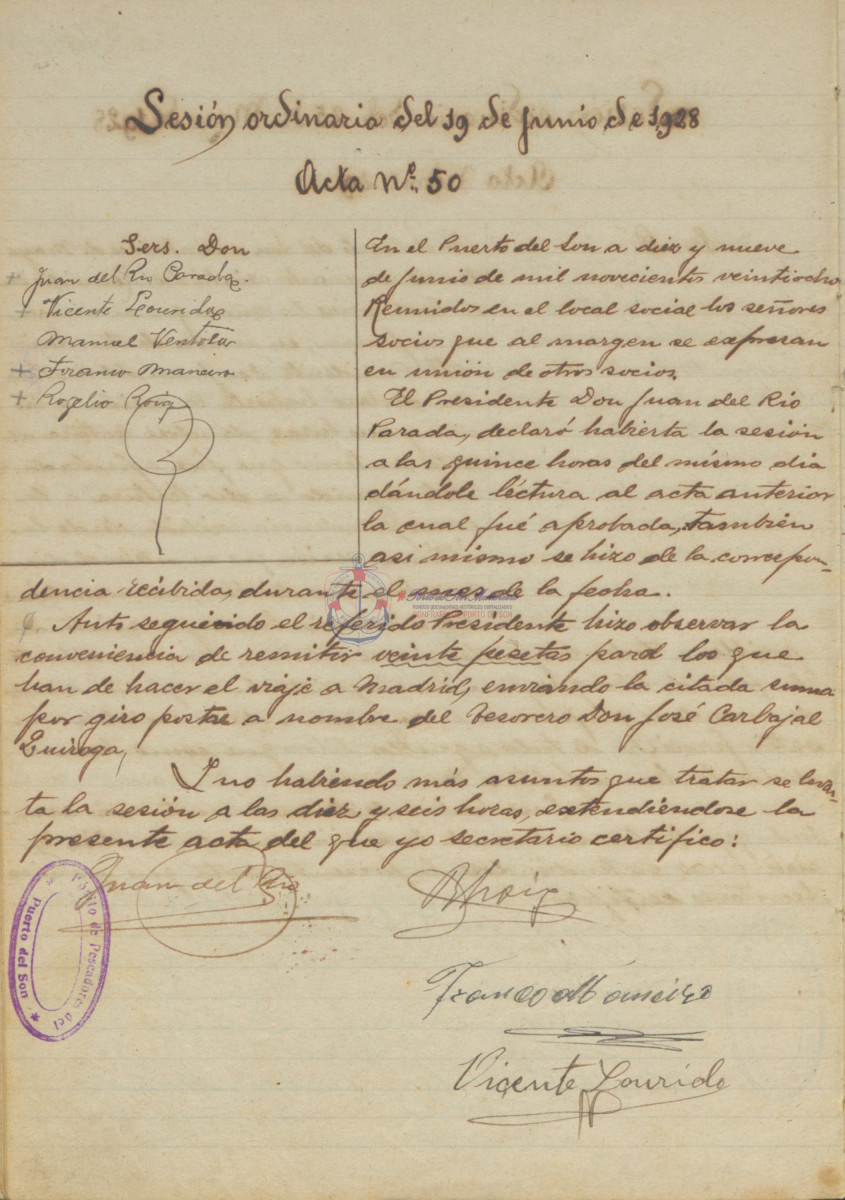 Sesión ordinaria del 19 de Junio de 1928
Acta Nº. 50
Sers. Don
+ Juan del Rio Parada.
+ Vicente Lourido
Manuel Ventoso
+ Franco Maneiro
+ Rogelio Roig
En el Puerto del Son a diez y nueve
de Junio de mil novecientos veintiocho
Reunidos en el local social los señores
socios que al margen se expresan
en unión de otros socios,
El Presidente Don Juan del Rio
Parada, declaró habierta la sesión
a las quince horas del mismo dia
dándole léctura al acta anterior
la cual fué aprobada, también
asi mismo se hizo de la correspon-
dencia recibida, durante el mes de la fecha.
Auto seguido el referido Presidente hizo observar la
conveniencia de remitir veinte pesetas para los que
han de hacer el viaje a Madrid, enviando la citada suma
por giro postal a nombre del Tesorero Don José Carbajal
Quiroga,
I no habiendo más asuntos que tratar se levan-
ta la sesión a las diez y seis horas, extendiéndose la
presente acta del que yo secretario certifico:
Juan del Rio
RRoig
Franco Maneiro
Vicente Lourido
Pósito de Pescadores del
Puerto del Son